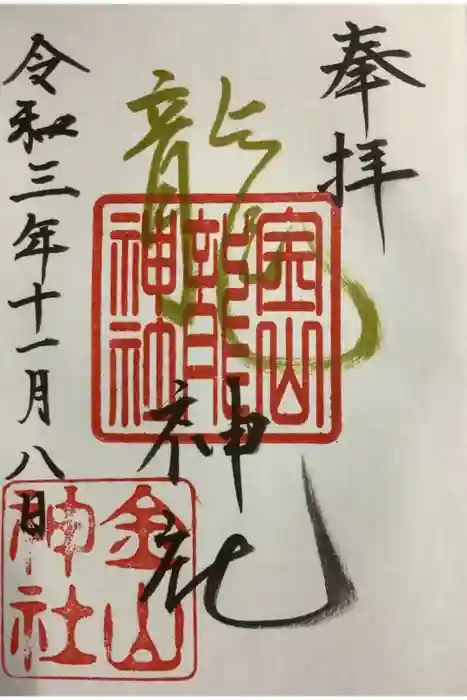 奉拝
龍神社
令和三年十一月八日
山
龍
神社
金山
神社